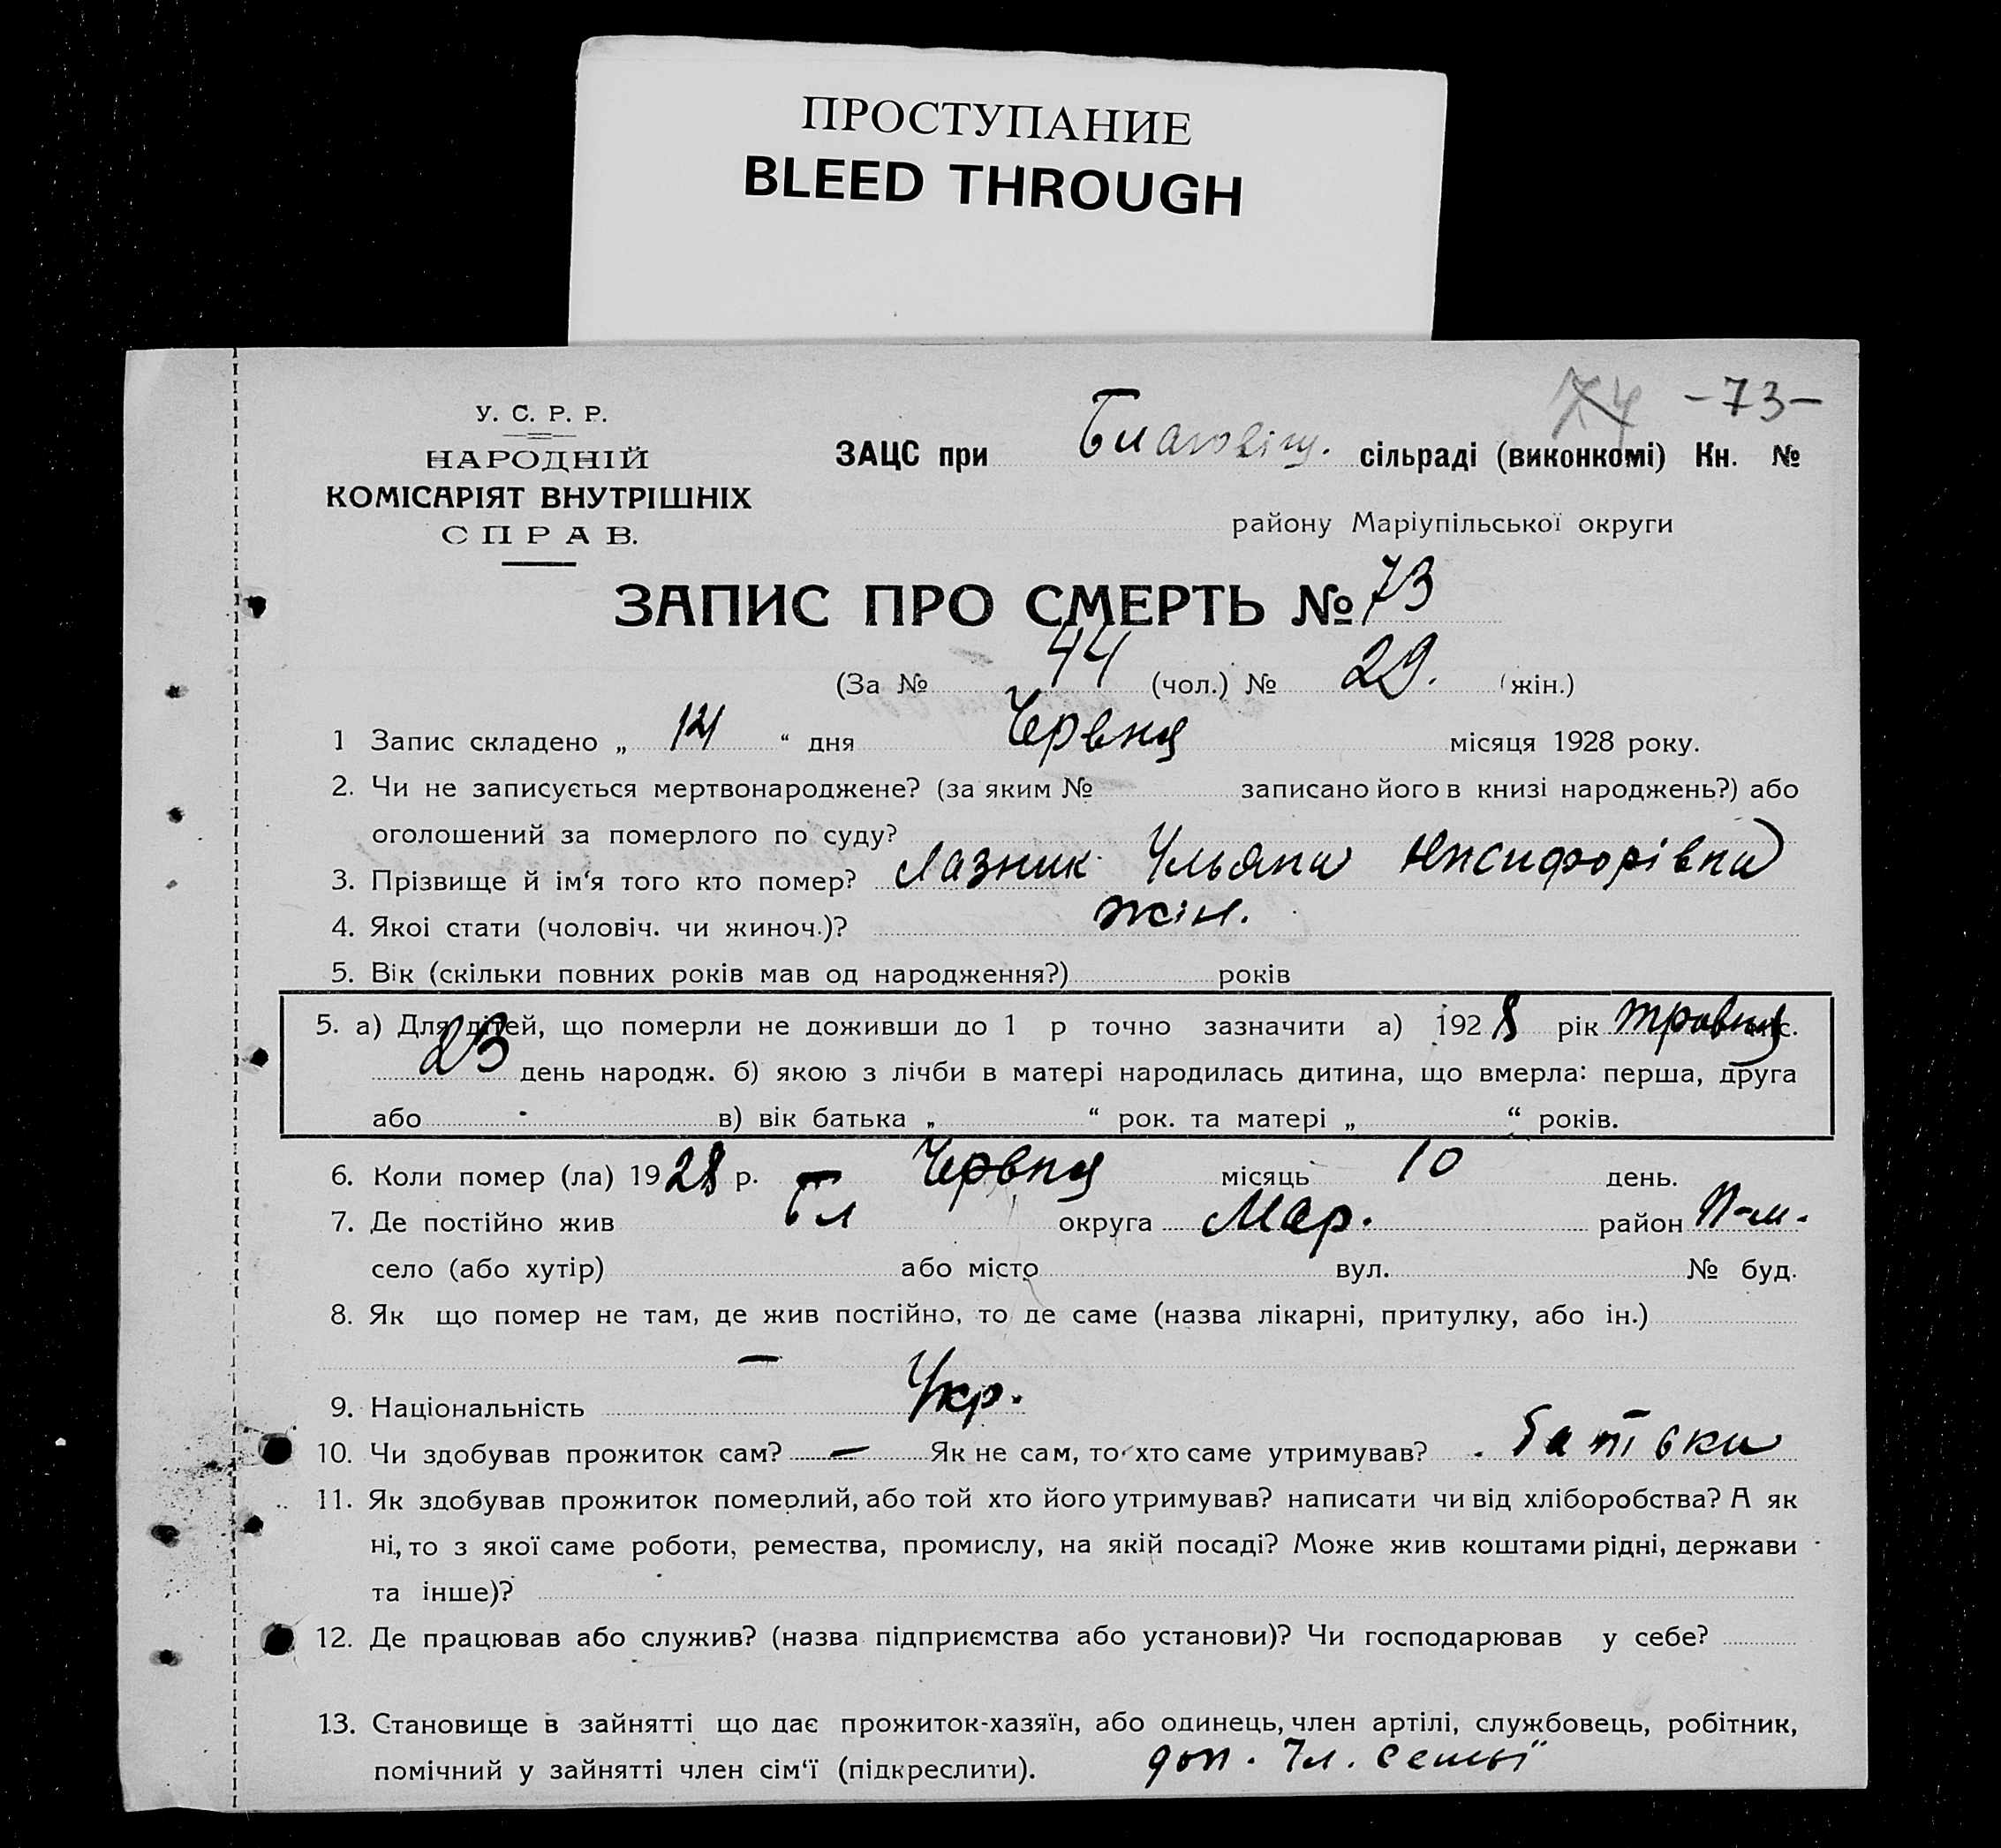 ПРОСТУПАНИЕ
BLEED THROUGH
74 -73-
У. С. Р. Р.
НАРОДНІЙ
КОМІСАРІЯТ ВНУТРІШНІХ
СПРАВ.
ЗАЦС при Благовіщ. сільраді (виконкомі) Кн. №
району Маріупільської округи
ЗАПИС ПРО СМЕРТЬ № 73
(За № 44 (чол.) № 29. (жін.)
1 Запис складено „ 14 “ дня Червня місяця 1928 року.
2. Чи не записується мертвонароджене? (за яким № записано його в книзі народжень?) або
оголошений за померлого по суду?
3. Прізвище й ім‘я того кто помер? Лазник Ульяна
4. Якоі стати (чоловіч. чи жиноч.)? жін.
5. Вік (скільки повних років мав од народження?) років
5. а) Для дітей, що померли не доживши до 1 р точно зазначити а) 1928 рік травня міс.
23 день народж. б) якою з лічби в матері народилась дитина, що вмерла: перша, друга
або в) вік батька „ “ рок. та матері „ “ років.
6. Коли помер (ла) 1928 р. Червня місяць 10 день.
7. Де постійно жив Бл округа Мар. район П-м.
село (або хутір) або місто вул. № буд.
8. Як що помер не там, де жив постійно, то де саме (назва лікарні, притулку, або ін.)
—
9. Національність Укр.
10. Чи здобував прожиток сам? — Як не сам, то хто саме утримував? батьки
11. Як здобував прожиток померлий, або той хто його утримував? написати чи від хліборобства? А як
ні, то з якої саме роботи, ремества, промислу, на якій посаді? Може жив коштами рідні, держави
та інше)?
12. Де працював або служив? (назва підприємства або установи)? Чи господарював у себе?
13. Становище в зайнятті що дає прожиток-хазяїн, або одинець, член артілі, службовець, робітник,
помічний у зайнятті член сім‘ї (підкреслити). доп. чл. семьї